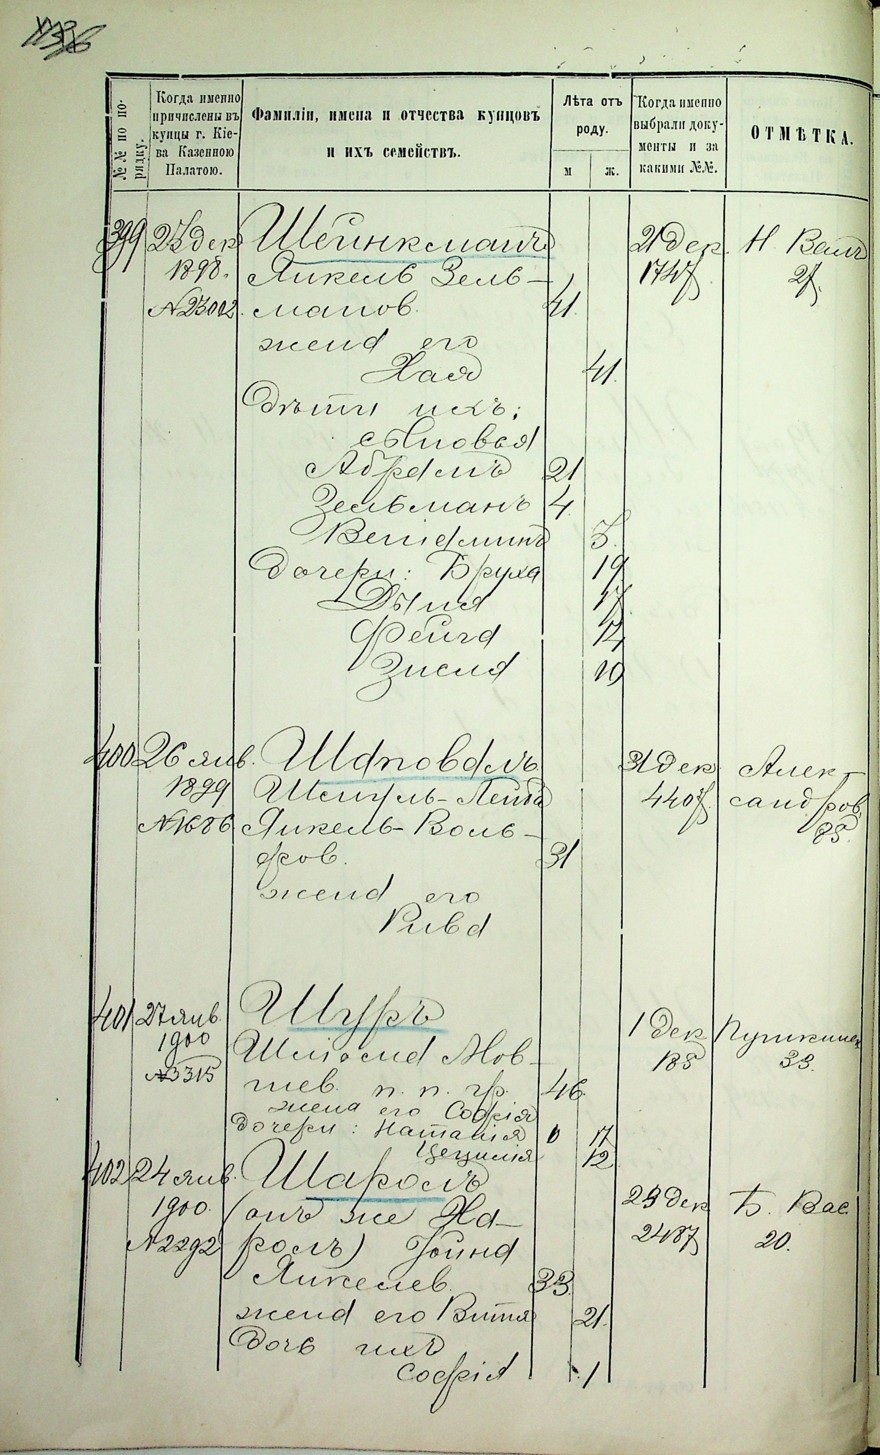 №№ по порядку.
Когда именно причислены въ купцы г. Кіева Казенною Палатою.
Фамиліи, имена и отчества купцовъ и ихъ семействъ.
Лѣта отъ роду.
м
ж.
Когда именно выбрали документы и за какими №№.
ОТМѢТКА.
399 23 дек Шейнкманъ 21 дек. Н. Валъ
1898. Янкель Зель- 1747 27.
№23002. манов. 41
жена его
Хая 41.
Дѣти ихъ:
сыновья
Абрамъ 21
Зельманъ 4
Веніаминъ 3.
дочери: Бруха 19
Дыня 17
Фейга 14
Зисля 10
400 26 янв. Шаповалъ 31 дек. Алек-
1899 Шмуль-Лейба 4407. сандров.
№1686 Янкель-Воль- 85.
фов. 31
жена его
Рива
401 27 янв. Шуръ 1 дек. Пушкинск
1900 Шліома Мов- 185 33.
№3315 шев. п. п. гр. 46
жена его Софія
дочери: Наталія 17
Цецилія 12
402 24 янв. Шаролъ 29 дек. Б. Вас.
1900. (онъ же Ха- 2487 20.
№2292 ролъ) Іойна
Янкелев. 33
жена его Витя 21.
дочь ихъ
Софія 1